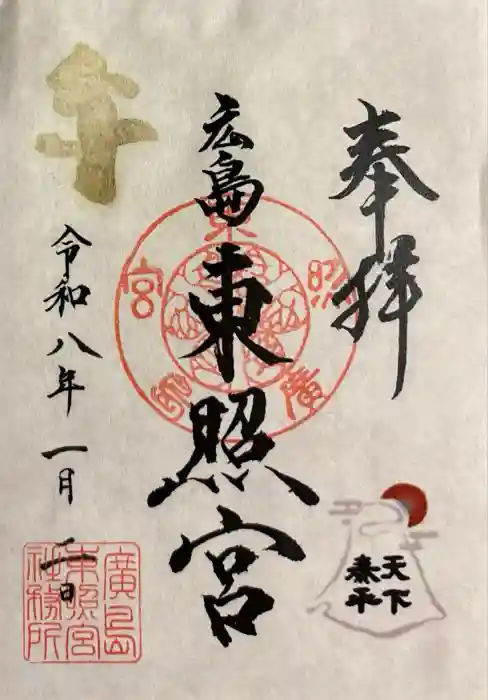 奉拝
広島
東照宮
令和八年一月二日
天下
泰平
廣島
東照宮
社務所